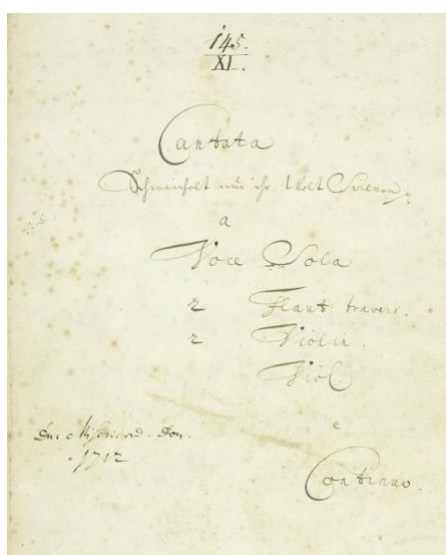 145.
XI.
Cantata
Schmeichelt nur ihr Welt Sirenen.
a
Voce Sola
2 Flaut travers.
2 Violin.
Viol
e
Misericord. Dom.
1712
Continuo.